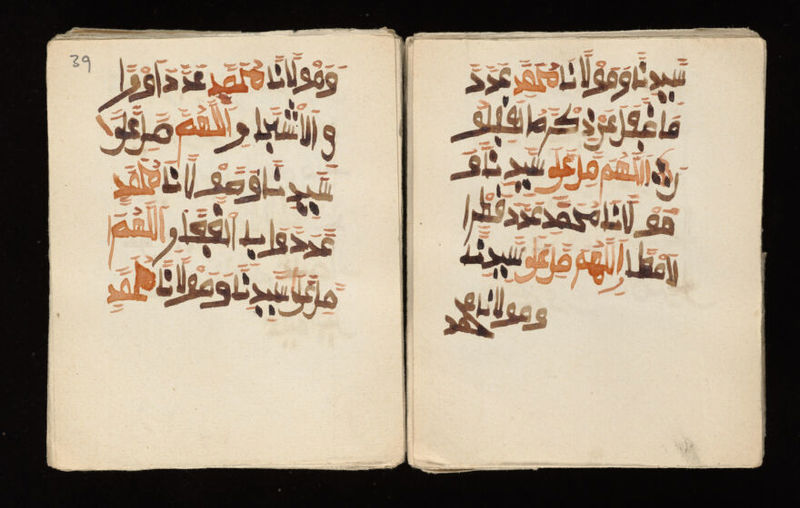 سيدنا ومولانا محمد عدد
ما غفل عن ذكره الغافلو
ن اللهم صل على سيدنا و
مولانا محمد عدد قطر ا
لامطار اللهم صل على سيدنا
ومولانا محمد
39
ومولانا محمد عدد اورا
ق الاشجار اللهم صل على
سيدنا ومولانا محمد
عدد دواب القفار اللهم
صل على سيدنا ومولانا محمد